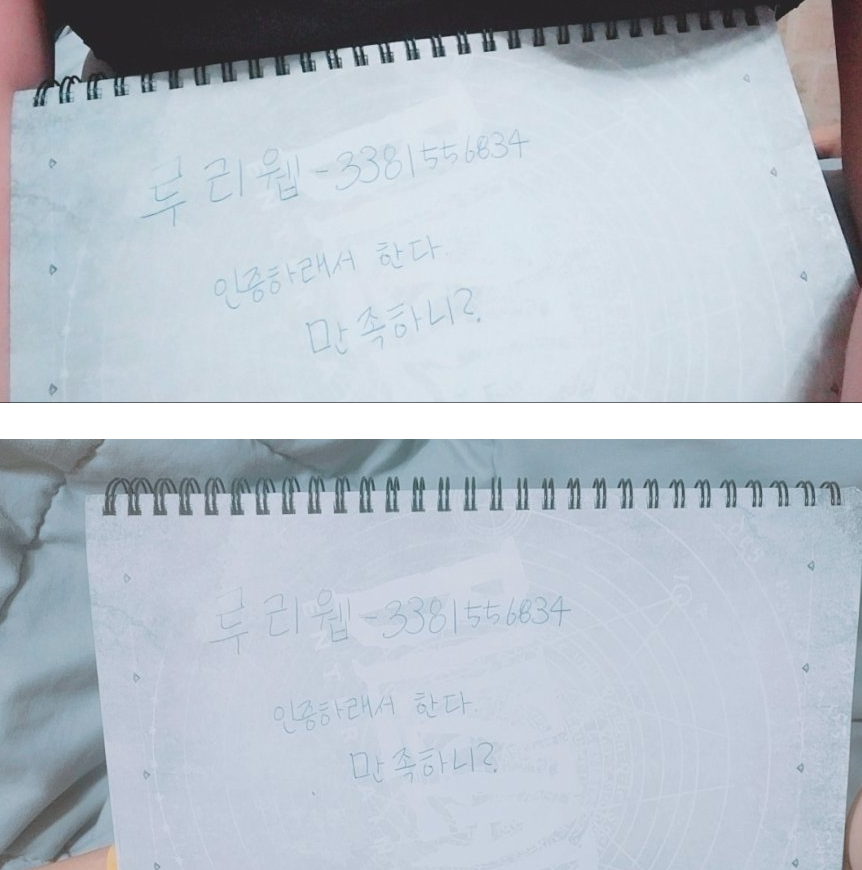 루리웹-3381556834
인증하래서 한다.
만족하니?
루리웹-3381556834
인증하래서 한다.
만족하니?